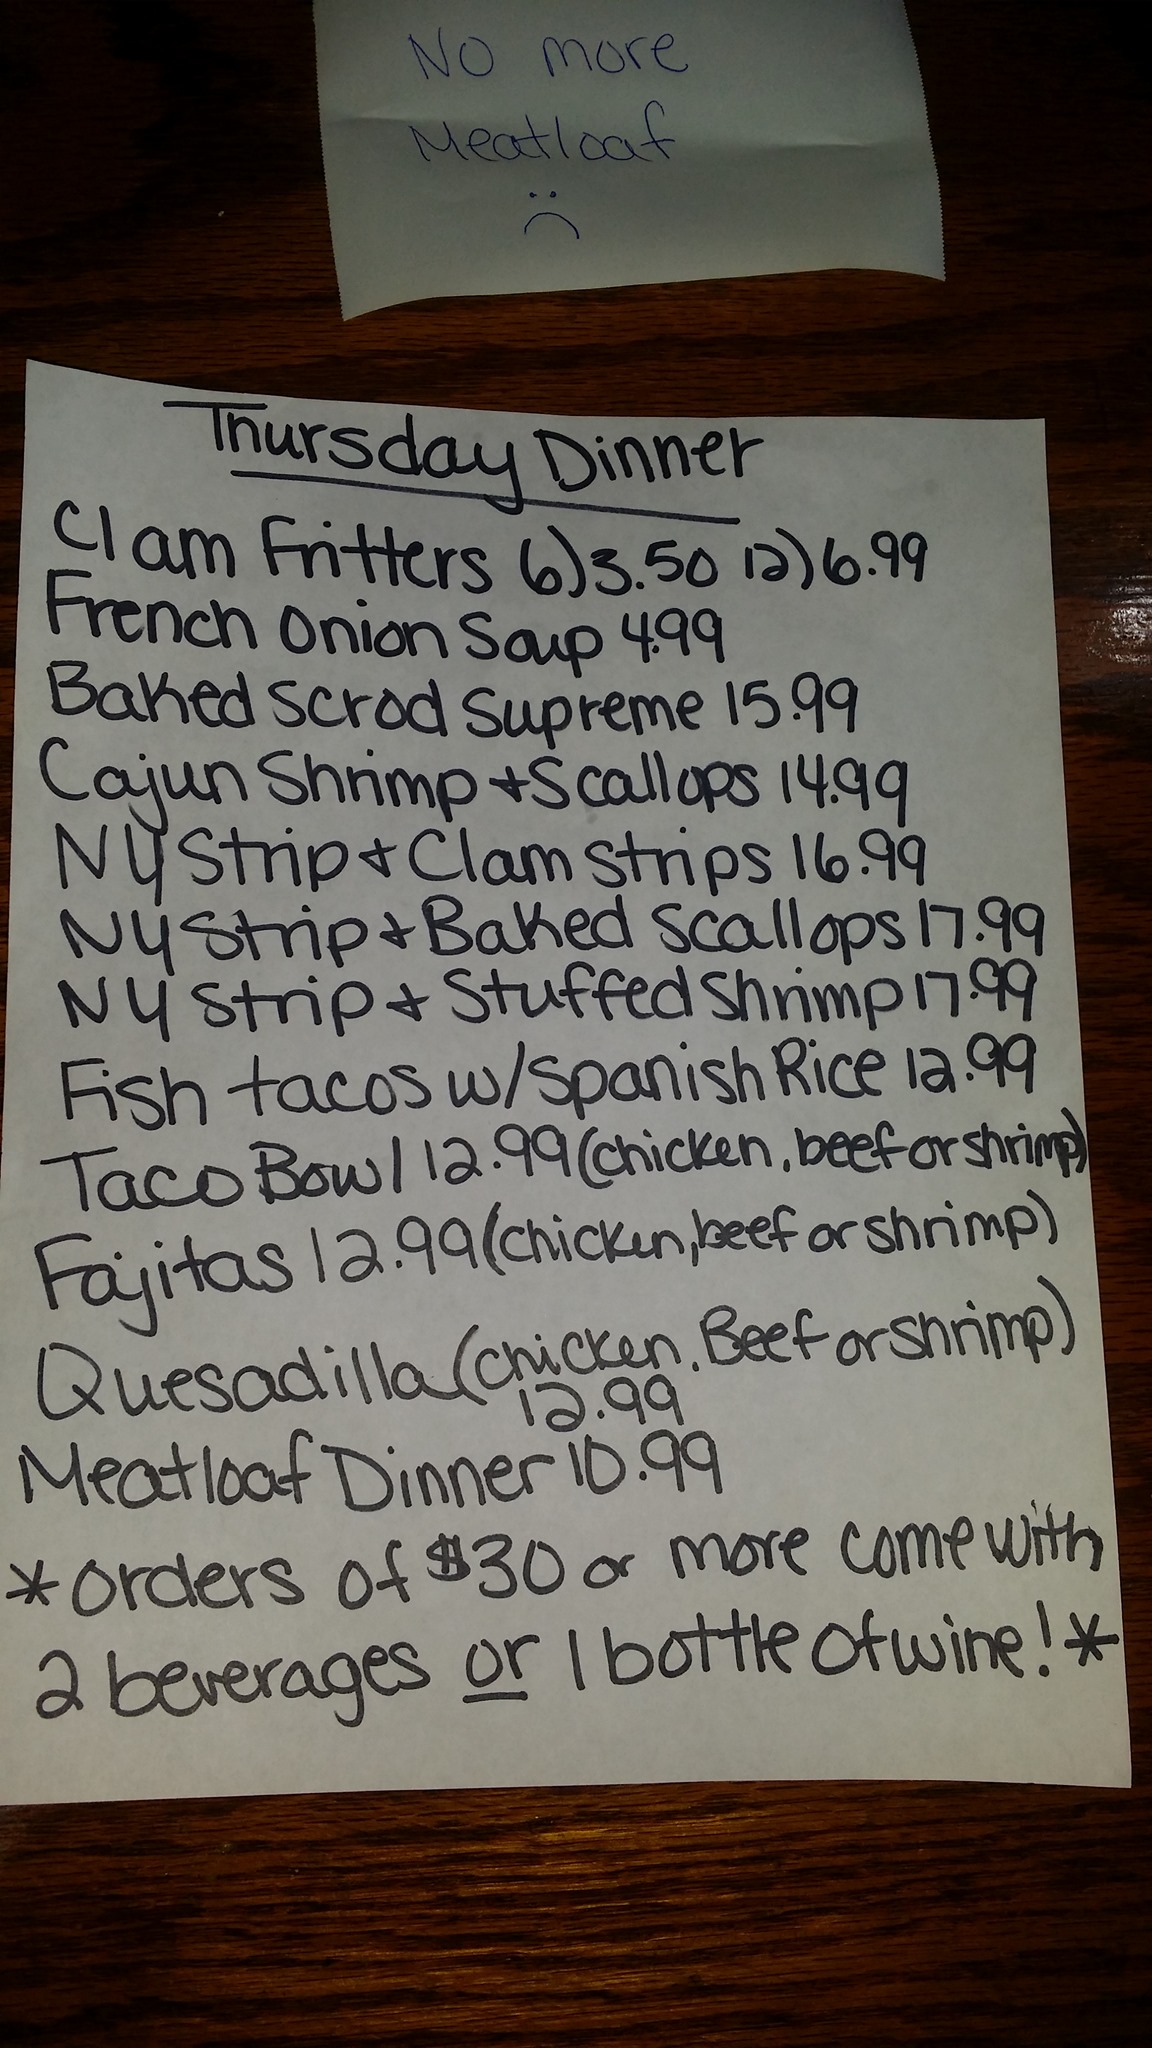 No more
Meatloaf
Thursday Dinner
Clam Fritters 6)3.50 12)6.99
French Onion Soup 4.99
Baked Scrod Supreme 15.99
Cajun Shrimp + Scallops 14.99
NY Strip + Clam Strips 16.99
NY Strip + Baked Scallops 17.99
NY Strip + Stuffed Shrimp 17.99
Fish tacos w/Spanish Rice 12.99
Taco Bowl 12.99 (chicken, beef or shrimp)
Fajitas 12.99 (chicken, beef or shrimp)
Quesadilla (chicken, Beef or shrimp)
12.99
Meatloaf Dinner 10.99
*orders of $30 or more come with
2 beverages or 1 bottle of wine!*